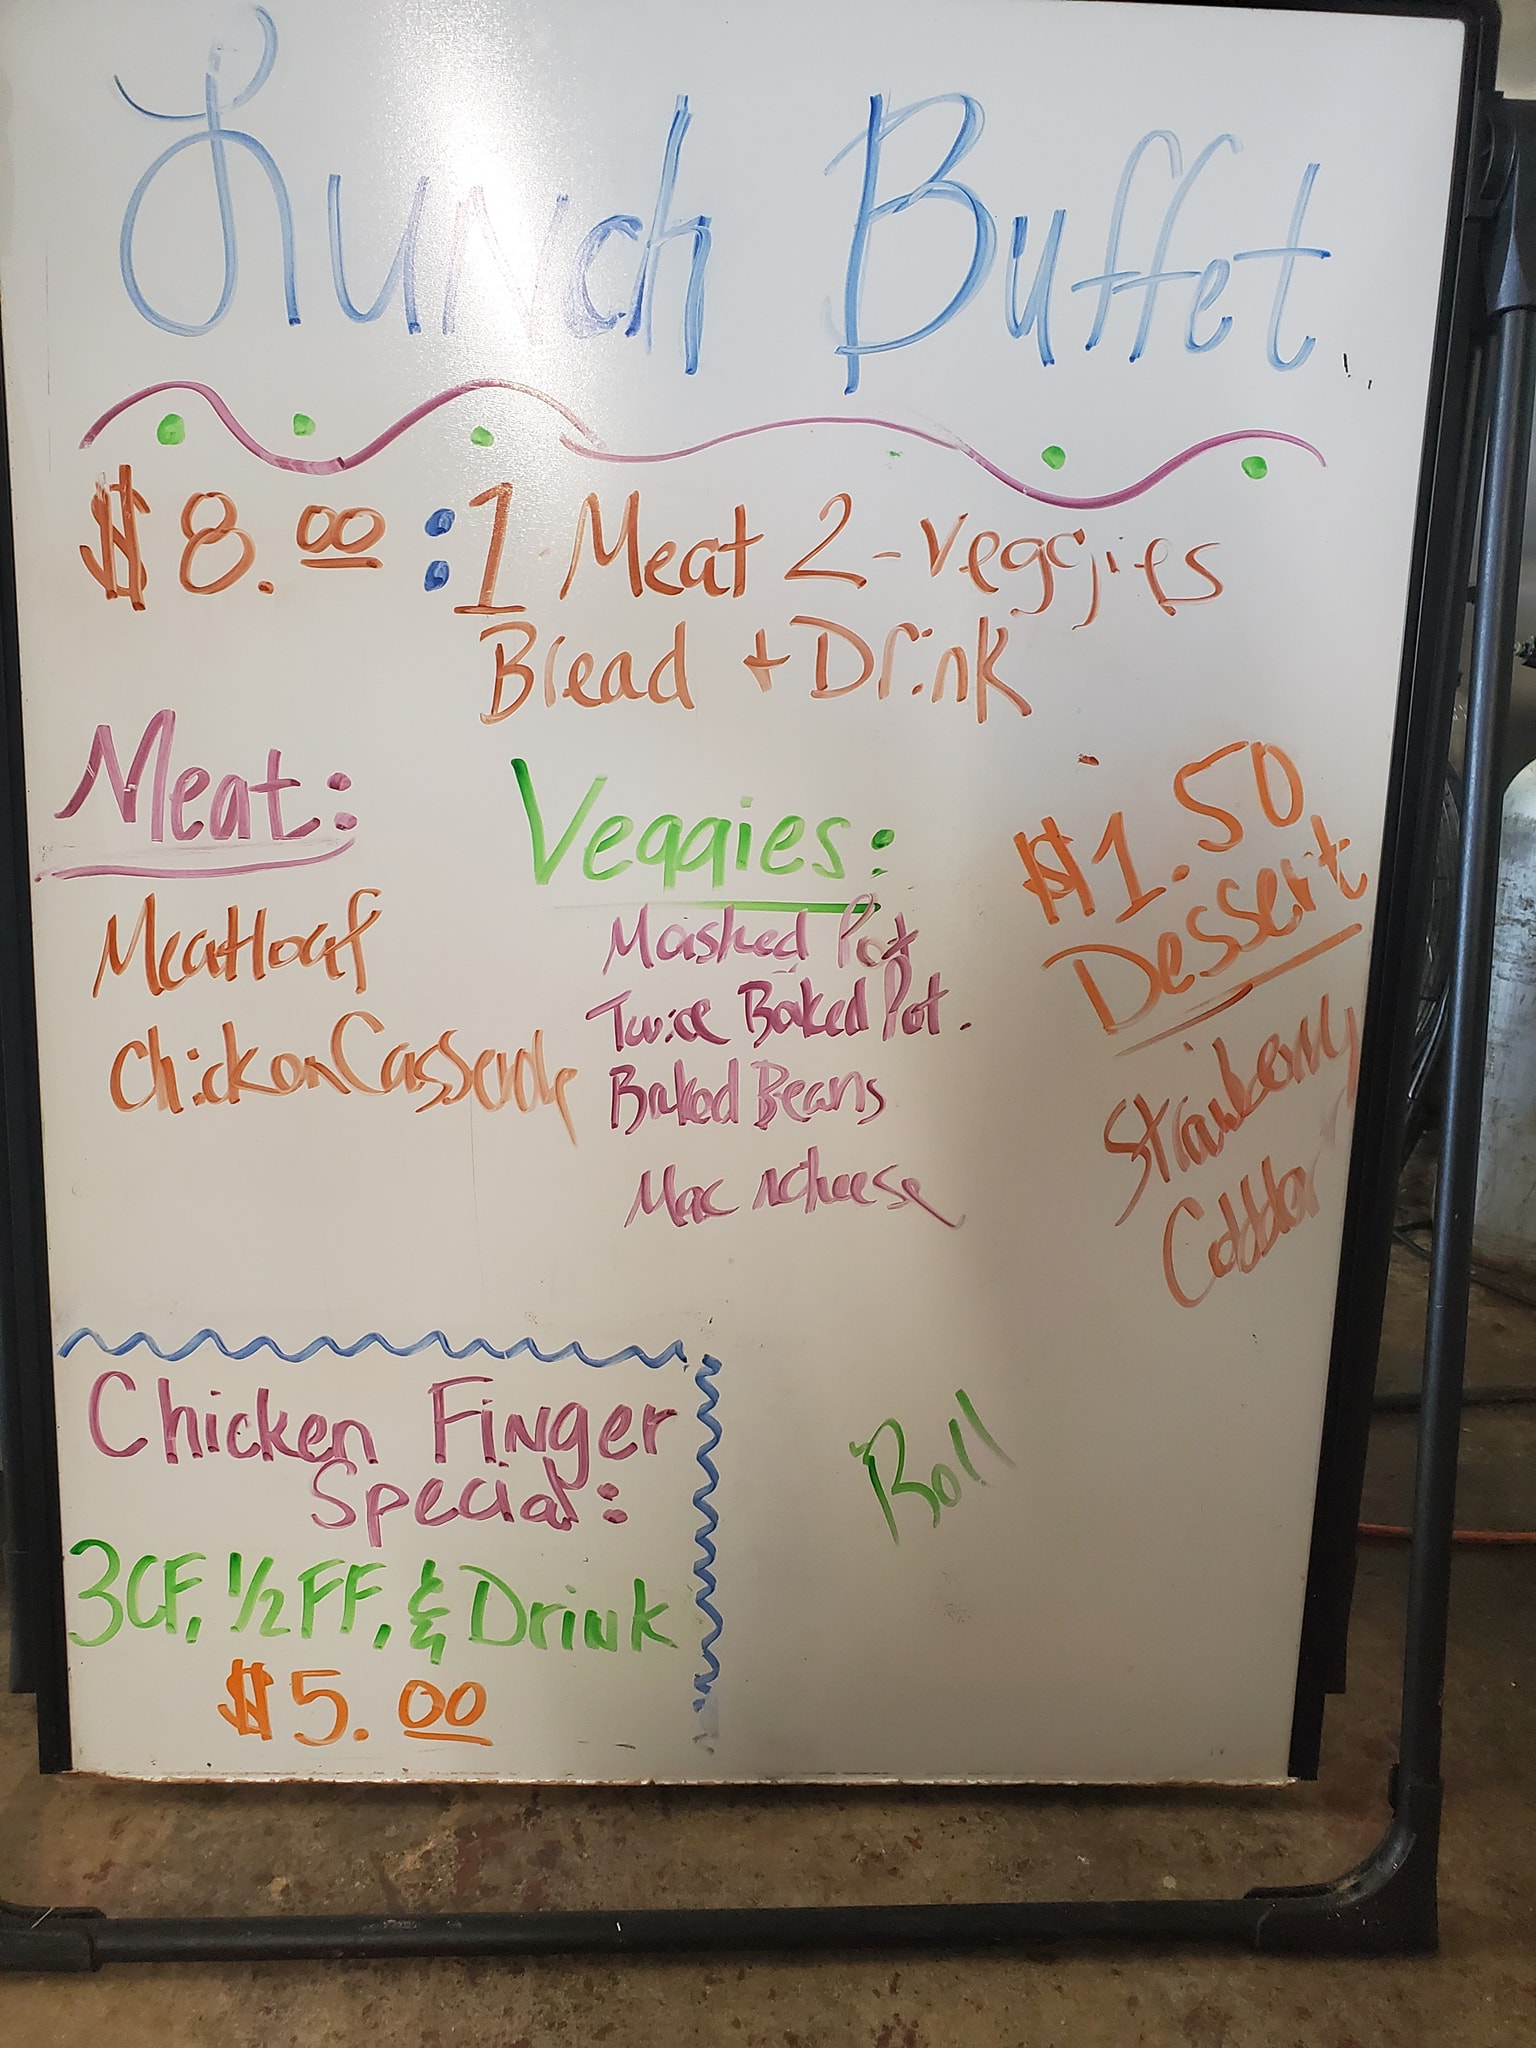 Lunch Buffet
$8.00 : 1 Meat 2-Veggies
Bread + Drink
Meat:
Meatloaf
Chicken Casserole
Veggies:
Mashed Pot
Twice Baked Pot.
Baked Beans
Mac n Cheese
$1.50
Dessert
Strawberry
Cobbler
Chicken Finger
Special:
3CF, 1/2 FF, & Drink
$5.00
Roll